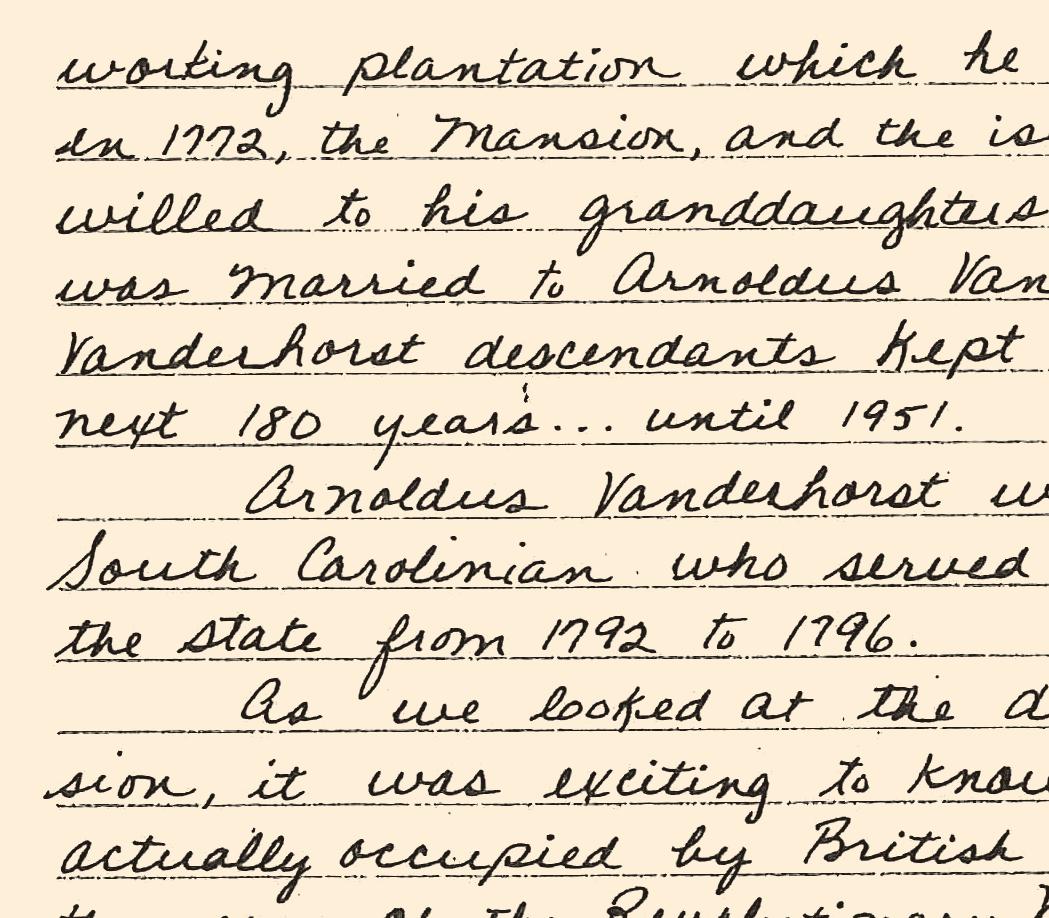 working plantation which he
In 1772, the Mansion, and the is
willed to his granddaughters
was Married to Arnoldus Van
Vanderhorst descendants Kept
next 180 years... until 1951.
Arnoldus Vanderhorst w
South Carolinian who served
the state from 1792 to 1796.
As we looked at the d
sion, it was exciting to know
actually occupied by British
of the Revolutionary